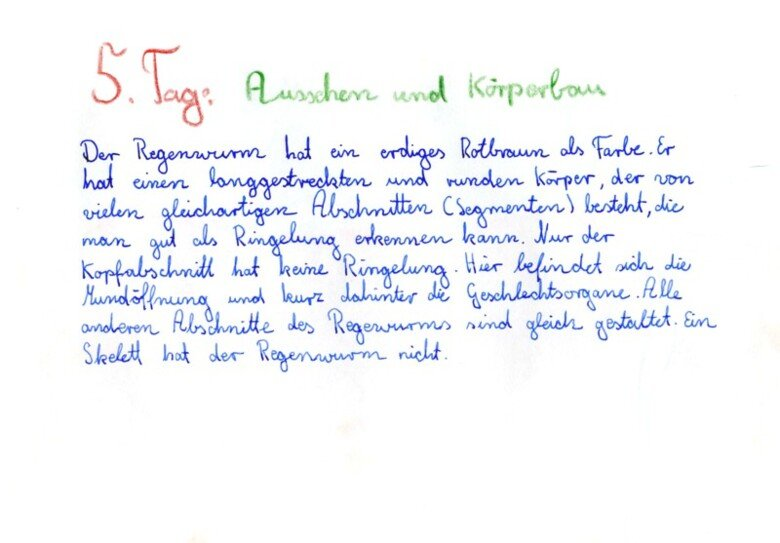 5. Tag: Aussehen und Körperbau
Der Regenwurm hat ein erdiges Rotbraun als Farbe. Er
hat einen langgestreckten und runden Körper, der von
vielen gleichartigen Abschnitten (Segmenten) besteht, die
man gut als Ringelung erkennen kann. Nur der
Kopfabschnitt hat keine Ringelung. Hier befindet sich die
Mundöffnung und kurz dahinter die Geschlechtsorgane. Alle
anderen Abschnitte des Regewurms sind gleich gestaltet. Ein
Skelett hat der Regenwurm nicht.